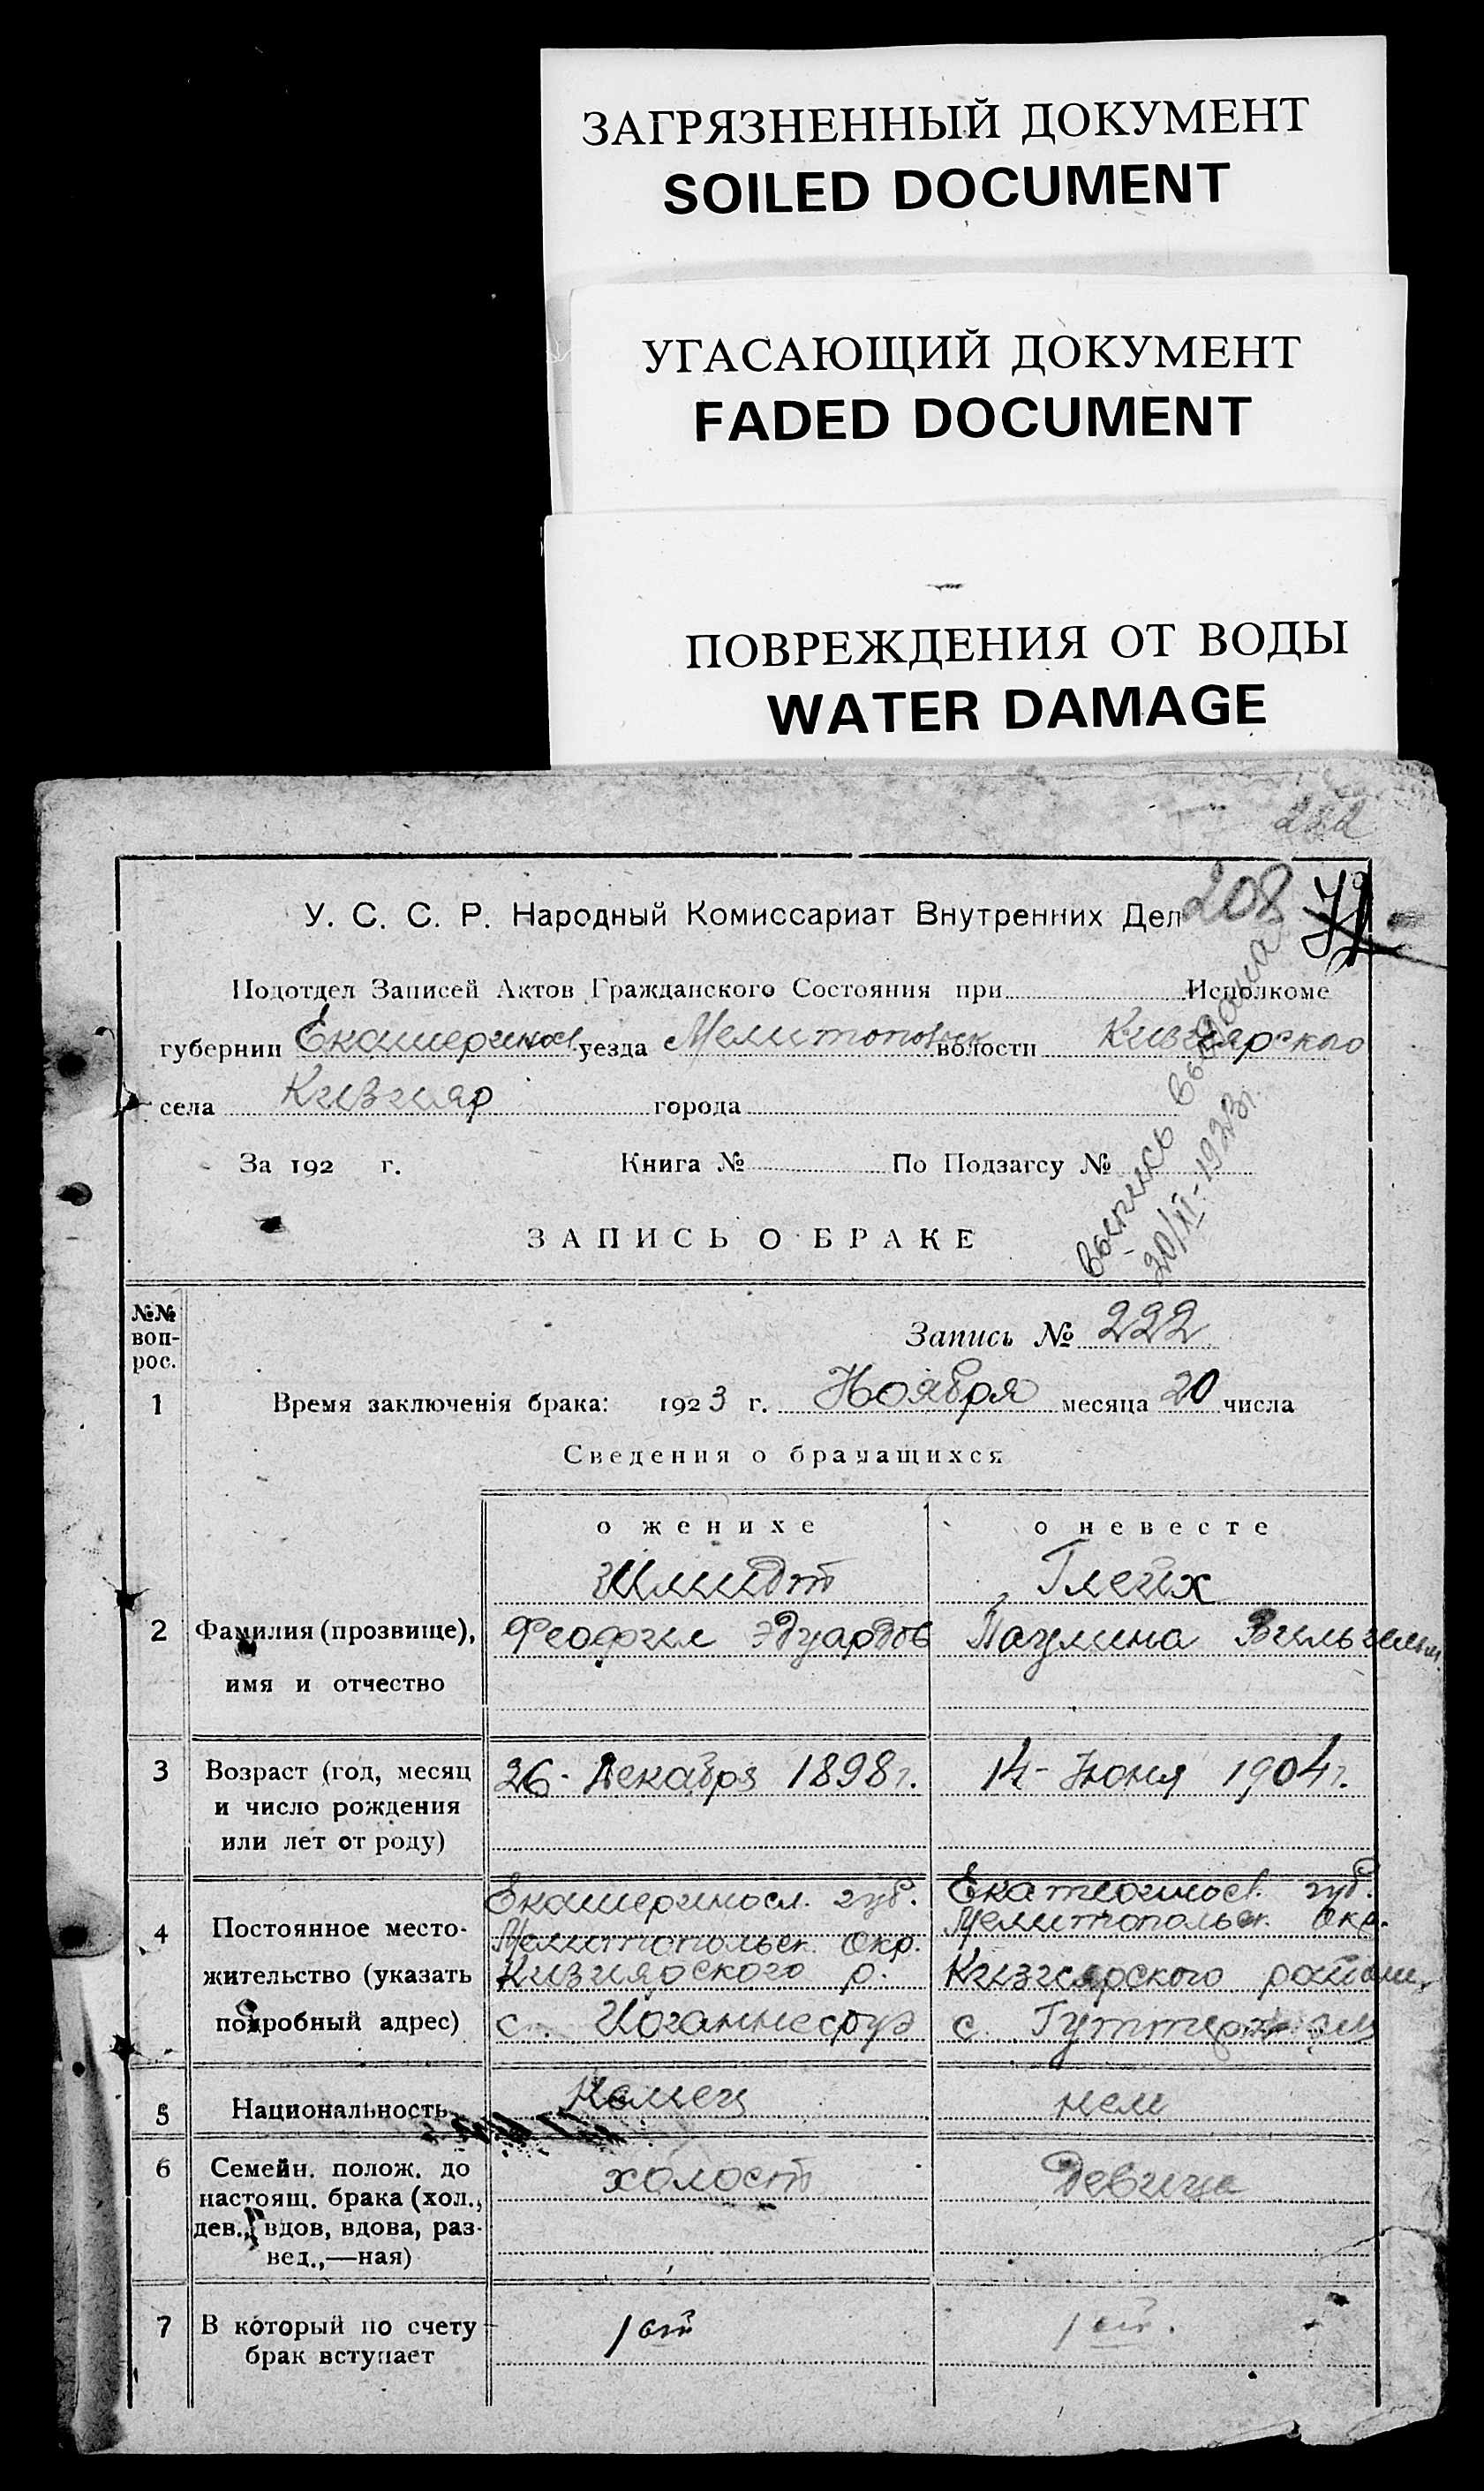 ЗАГРЯЗНЕННЫЙ ДОКУМЕНТ
SOILED DOCUMENT
УГАСАЮЩИЙ ДОКУМЕНТ
FADED DOCUMENT
ПОВРЕЖДЕНИЯ ОТ ВОДЫ
WATER DAMAGE
222
208
У. С. С. Р. Народный Комиссариат Внутренних Дел
Подотдел Записей Актов Гражданского Состояния при Исполкоме
губернии Екатеринос. уезда Мелитопольск волости Кизиярского
села Кизияр города
За 192 г. Книга № По Подзагсу №
выпись выдана
20/XI-1923г.
ЗАПИСЬ О БРАКЕ
№№ воп-рос.
Запись № 222
1 Время заключенія брака: 1923 г. Ноября месяца 20 числа
Сведения о брачащихся
о женихе о невесте
Шмидт Глейх
2 Фамилия (прозвище), Феофил Эдуардов Паулина Вильгельм.
имя и отчество
3 Возраст (год, месяц 26- Декабря 1898г. 14- Июня 1904г.
и число рождения
или лет от роду)
Екатериносл. губ. Екатеринос. губ.
4 Постоянное место- Мелитопольск. Окр. Мелитопольск. Окр.
жительство (указать Кизиярского р. Кизиярского района,
подробный адрес) с. Иоганнесруэ с.
5 Национальность Немец нем
6 Семейн. полож. до холост девица
настоящ. брака (хол.,
дев., вдов, вдова, раз-
вед.,—ная)
7 В который по счету 1ый 1ый.
брак вступает